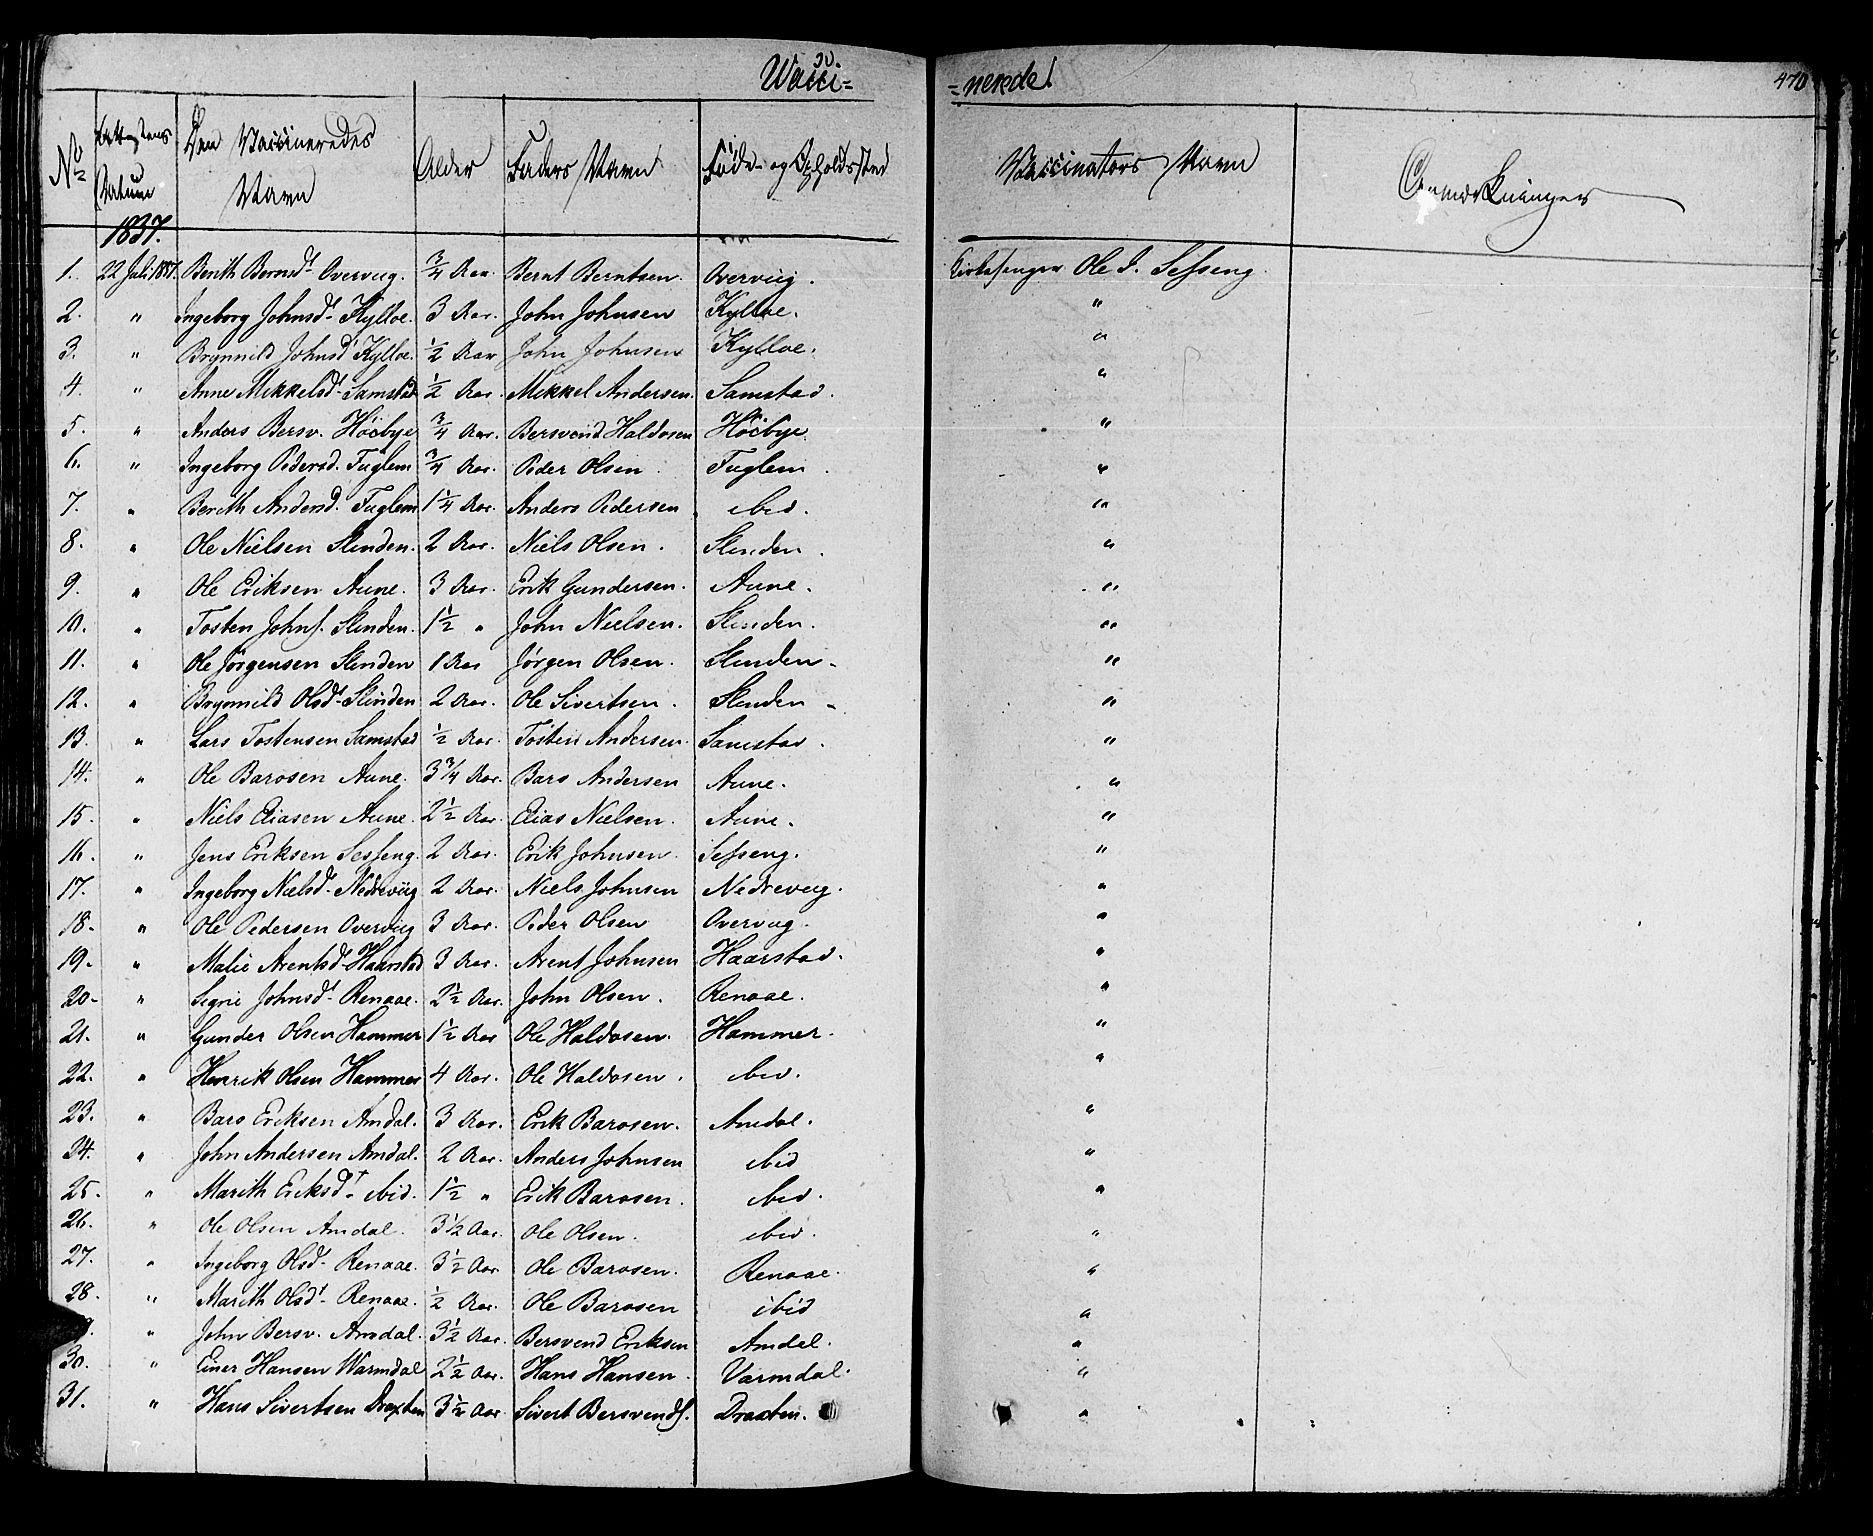 Vacci= =nerede! 470
No Attestens Datum Den Vaccineredes Navn Alder Faders Navn Føde- og Opholdssted Vaccinators Navn Anmærkninger
1837.
1. 22 Juli 1837. Berith Berntsd. Overvug. 3/4 Aar. Bernt Berntsen. Overvug. Kirkesanger Ole J. Sesseng.
2. " Ingeborg Johnsd. Kylloe. 3 Aar. John Johnsen Kylloe. "
3. " Brynnild Johnsd. Kylloe. 1/2 Aar John Johnsen Kylloe. "
4. " Anne Mikkelsd. Samstad 1/2 Aar. Mikkel Andersen. Samstad. "
5. " Anders Bersv. Höebye 3/4 Aar. Bersvend Haldosen Höebye. "
6. " Ingeborg Pedersd. Fuglem 3/4 Aar. Peder Olsen Fuglem. "
7. " Berith Andersd. Fuglem 1 1/4 Aar. Anders Pedersen ibid. "
8. " Ole Nielsen Slinden. 2 Aar. Niels Olsen. Slinden. "
9. " Ole Eriksen Aune. 3 Aar. Erik Gundersen. Aune. "
10. " Tosten Johns. Slinden. 1 1/2 " John Nielsen. Slinden. "
11. " Ole Jörgensen Slinden 1 Aar Jörgen Olsen. Slinden. "
12. " Brynnild Olsd. Slinden 2 Aar. Ole Sivertsen. Slinden. "
13. " Lars Tostensen Samstad 1/2 Aar. Tosten Andersen. Samstad. "
14. " Ole Barosen Aune. 3 3/4 Aar. Baro Andersen Aune. "
15. " Niels Eliasen Aune. 2 1/2 Aar. Elias Nielsen. Aune. "
16. " Jens Eriksen Sesseng. 2 Aar. Erik Johnsen. Sesseng. "
17. " Ingeborg Nielsd. Nedrevug 2 Aar. Niels Johnsen Nedrevug. "
18. " Ole Pedersen Overvug 3 Aar. Peder Olsen Overvug. "
19. " Malie Arentsd. Haarstad 3 Aar. Arent Johnsen Haarstad. "
20. " Sigrie Johnsd. Renaae. 2 1/2 Aar. John Olsen. Renaae. "
21. " Gunder Olsen Hammer 1 1/2 Aar Ole Haldosen. Hammer. "
22. " Henrik Olsen Hammer 4 Aar. Ole Haldosen. ibid. "
23. " Baro Eriksen Amdal. 3 Aar. Erik Barosen. Amdal. "
24. " John Andersen Amdal. 2 Aar. Anders Johnsen ibid "
25. " Marith Eriksd. ibid. 1 1/2 " Erik Barosen. ibid. "
26. " Ole Olsen Amdal. 3 1/2 Aar. Ole Olsen. ibid. "
27. " Ingeborg Olsd. Renaae. 3 1/2 Aar. Ole Barosen. Renaae. "
28. " Marith Olsd. Renaae. 1/2 Aar. Ole Barosen ibid "
" John Bersv. Amdal. 3 1/2 Aar. Bersvend Eriksen Amdal. "
30. " Einer Hansen Warmdal 2 1/2 Aar. Hans Hansen. Varmdal. "
31. " Hans Sivertsen Draxten 3 1/2 Aar Sivert Bersvends. Draxten. "